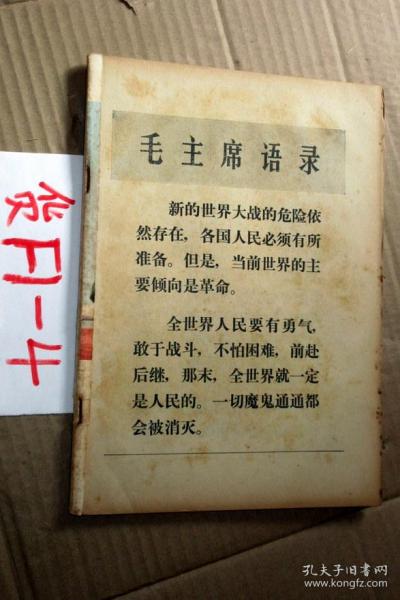 毛主席语录
新的世界大战的危险依
然存在，各国人民必须有所
准备。但是，当前世界的主
要倾向是革命。
全世界人民要有勇气，
敢于战斗，不怕困难，前赴
后继，那末，全世界就一定
是人民的。一切魔鬼通通都
会被消灭。
货F1-4
孔夫子旧书网
www.kongfz.com